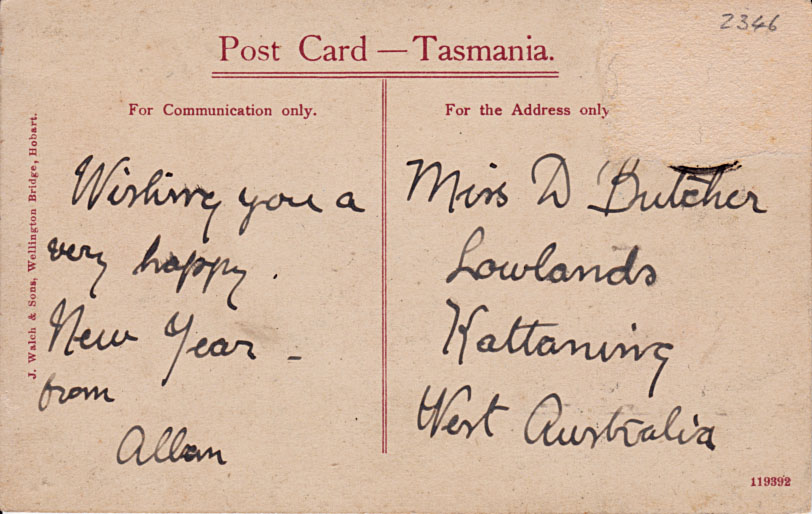 2346
Post Card — Tasmania.
For Communication only.
For the Address only
J. Walch & Sons, Wellington Bridge, Hobart.
Wishing you a
very happy.
New Year –
from
Allan
Miss D Butcher
Lowlands
Kattaning
West Australia
119392